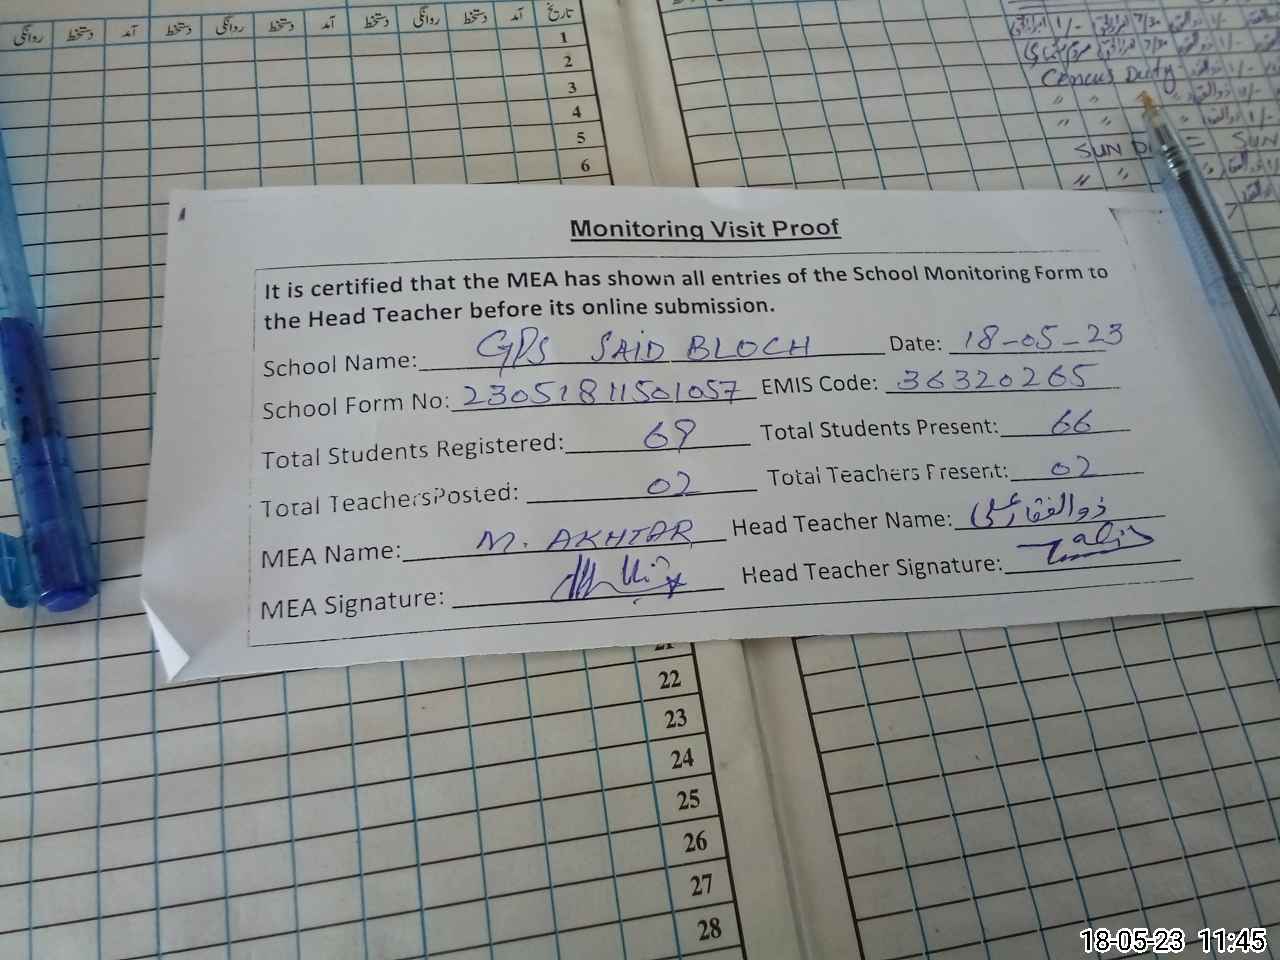 روانگی دستخط آمد دستخط روانگی دستخط آمد دستخط روانگی دستخط آمد تاریخ
1
2
3
4
5
6
Cencus Duty
" "
" "
SUN = SUN
" "
Monitoring Visit Proof
It is certified that the MEA has shown all entries of the School Monitoring Form to
the Head Teacher before its online submission.
School Name: GPS SAID BLOCH Date: 18-05-23
School Form No: 23051811501057 EMIS Code: 36320265
Total Students Registered: 69 Total Students Present: 66
Total TeachersPosted: 02 Total Teachers Present: 02
MEA Name: M. AKHTAR Head Teacher Name: ذوالفقار علی
MEA Signature: Head Teacher Signature:
21
22
23
24
25
26
27
28
18-05-23 11:45